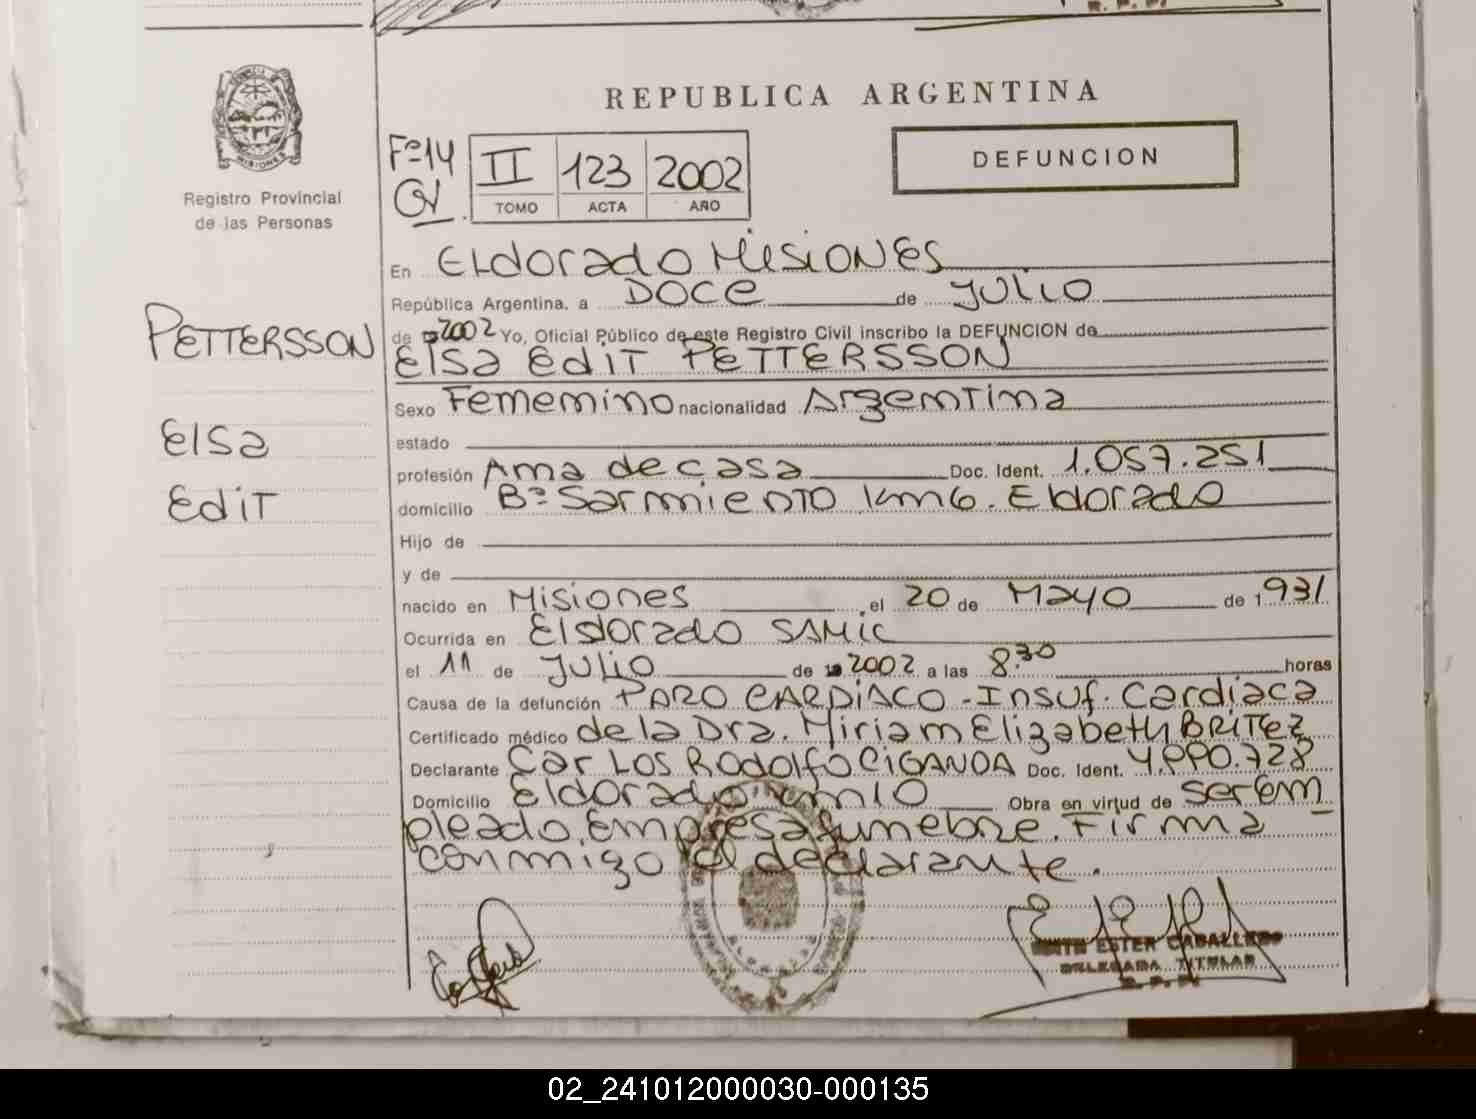 REPUBLICA ARGENTINA
DEFUNCION
Fº14
II 123 2002
TOMO ACTA AÑO
Registro Provincial
de las Personas
PETTERSSON
Elsa
Edit
En Eldorado Misiones
República Argentina, a Doce de Julio
de 2002 Yo, Oficial Público de este Registro Civil inscribo la DEFUNCION de
Elsa Edit PETTERSSON
Sexo Femenino nacionalidad Argentina
estado
profesión Ama de casa Doc. Ident. 1.057.251
domicilio Bº Sarmiento Km6. Eldorado
Hijo de
y de
nacido en Misiones, el 20 de Mayo de 1931
Ocurrida en Eldorado SAMIC
el 11 de Julio de 2002 a las 8.30 horas
Causa de la defunción PARO CARDÍACO - Insuf. Cardíaca
Certificado médico de la Dra. Miriam Elizabeth BRITEZ
Declarante Carlos Rodolfo CIGANDA Doc. Ident.
Domicilio Eldorado Km10 Obra en virtud de ser em
pleado Empresa fúnebre. Firma
conmigo el declarante.
EDITH ESTER CABALLERO
DELEGADA TITULAR
R. P. P.
02_241012000030-000135